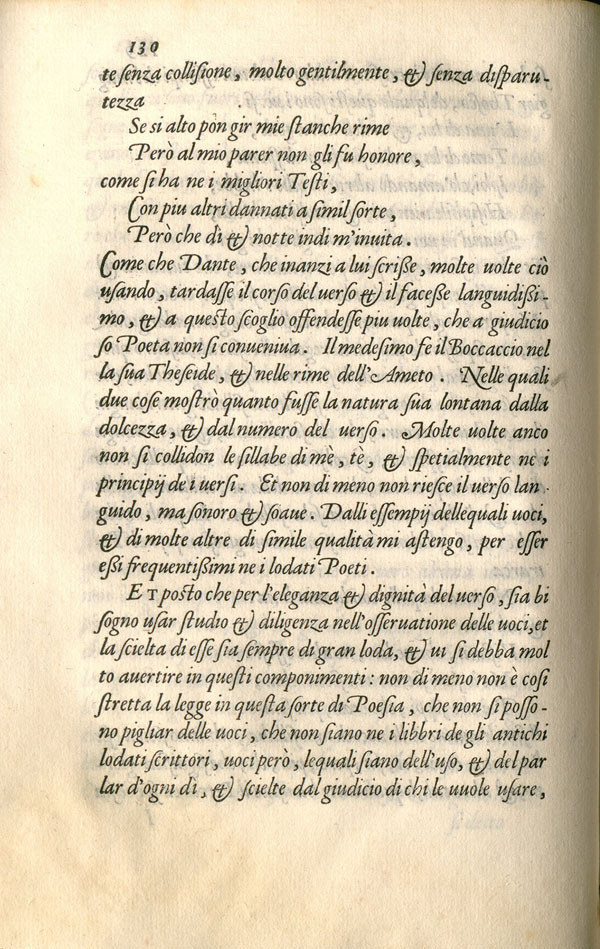 130
te senza collisione, molto gentilmente, & senza disparu-
tezza
Se si alto pon gir mie stanche rime
Però al mio parer non gli fu honore,
come si ha ne i migliori Testi,
Con piu altri dannati a simil sorte,
Però che dì & notte indi m'inuita.
Come che Dante, che inanzi a lui scriße, molte uolte ciò
usando, tardasse il corso del uerso & il faceße languidißi-
mo, & a questo scoglio offendesse piu uolte, che a giudicio
so Poeta non si conueniua. Il medesimo fe il Boccaccio nel
la sua Theseide, & nelle rime dell'Ameto. Nelle quali
due cose mostrò quanto fusse la natura sua lontana dalla
dolcezza, & dal numero del uerso. Molte uolte anco
non si collidon le sillabe di mè, tè, & spetialmente ne i
principij de i uersi. Et non di meno non riesce il uerso lan
guido, ma sonoro & soaue. Dalli essempij dellequali uoci,
& di molte altre di simile qualità mi astengo, per esser
eßi frequentißimi ne i lodati Poeti.
ET posto che per l'eleganza & dignità del uerso, sia bi
sogno usar studio & diligenza nell'osseruatione delle uoci, et
la scielta di esse sia sempre di gran loda, & ui si debba mol
to auertire in questi componimenti: non di meno non è cosi
stretta la legge in questa sorte di Poesia, che non si posso-
no pigliar delle uoci, che non siano ne i libbri de gli antichi
lodati scrittori, uoci però, lequali siano dell'uso, & del par
lar d'ogni dì, & scielte dal giudicio di chi le uuole usare,